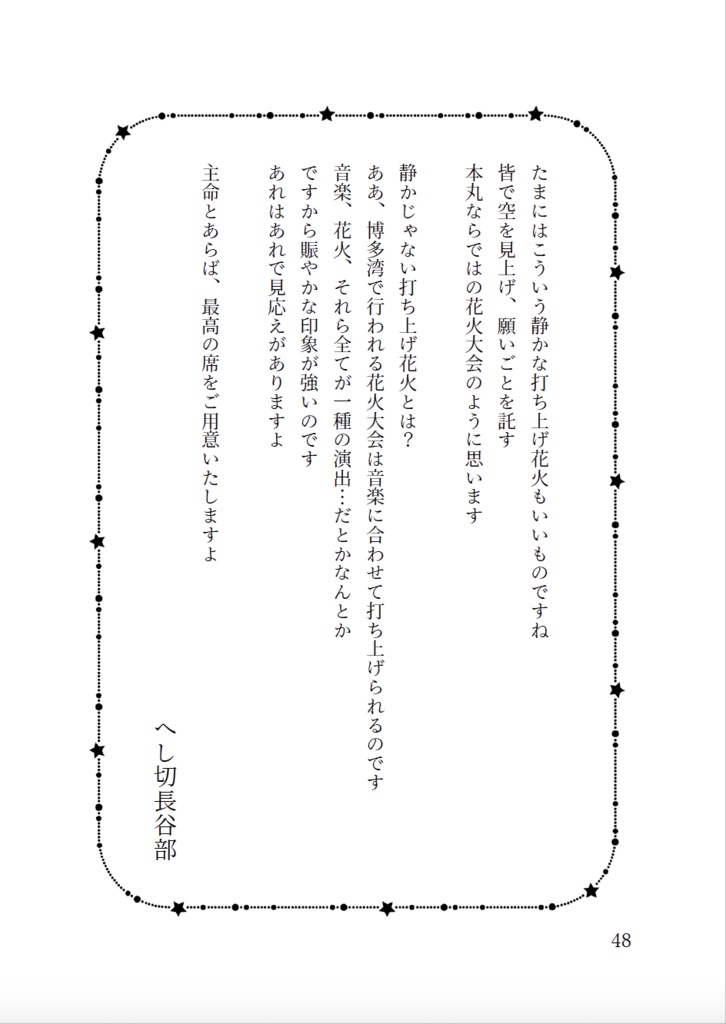 たまにはこういう静かな打ち上げ花火もいいものですね
皆で空を見上げ、願いごとを託す
本丸ならではの花火大会のように思います
静かじゃない打ち上げ花火とは？
ああ、博多湾で行われる花火大会は音楽に合わせて打ち上げられるのです
音楽、花火、それら全てが一種の演出…だとかなんとか
ですから賑やかな印象が強いのです
あれはあれで見応えがありますよ
主命とあらば、最高の席をご用意いたしますよ
へし切長谷部
48